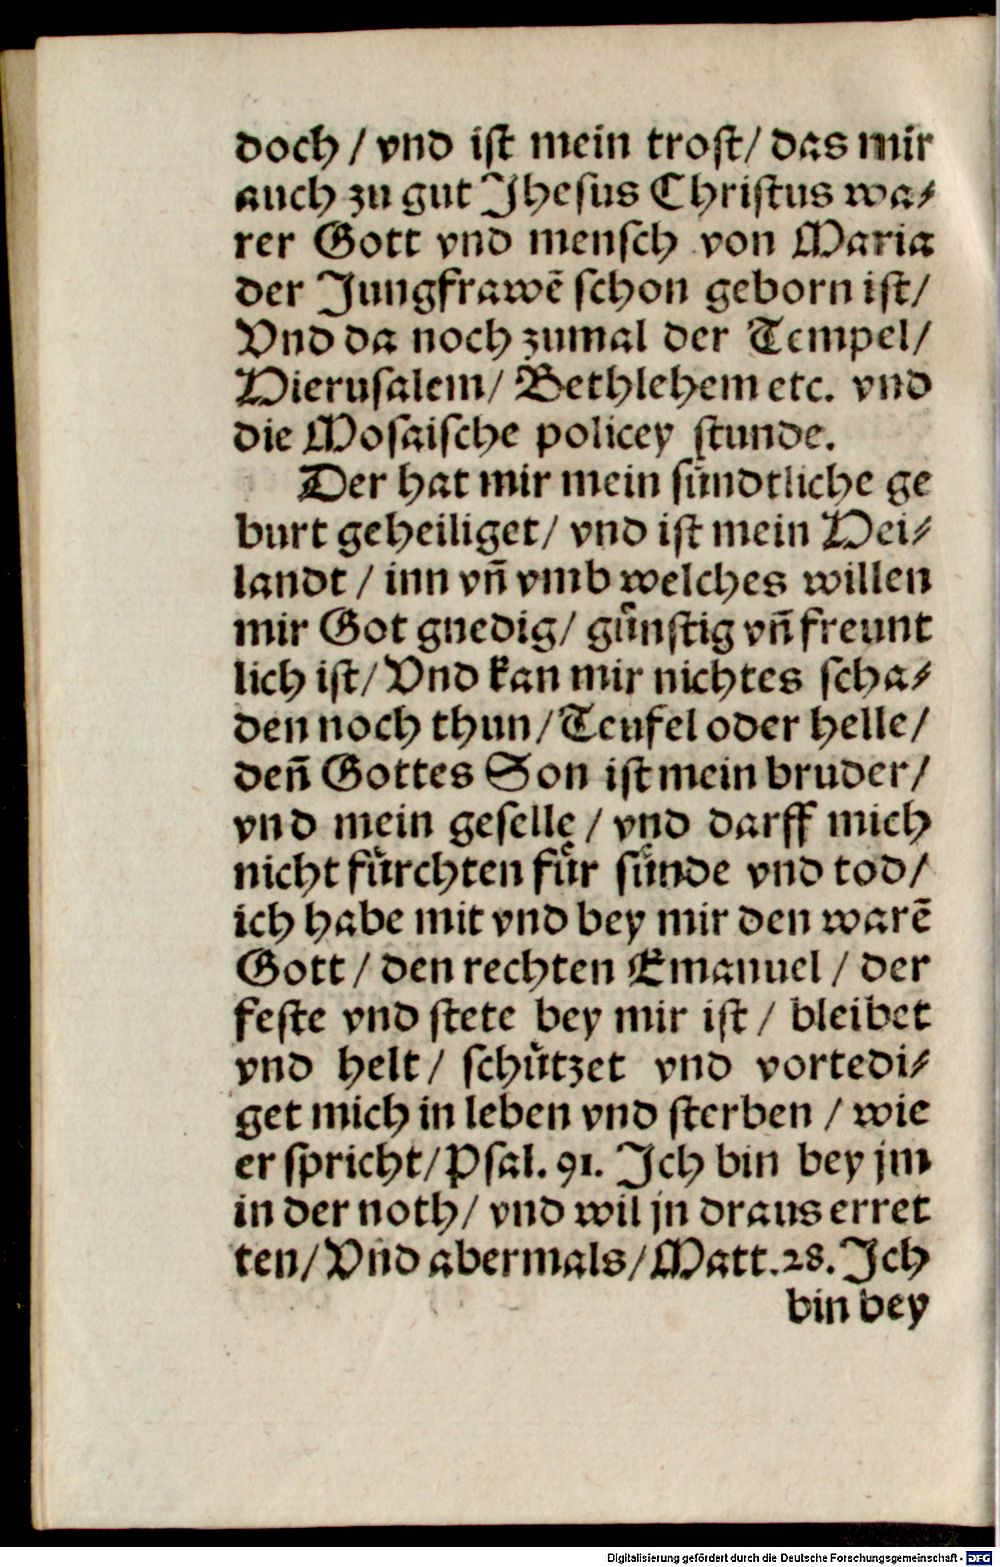 doch / vnd ist mein trost / das mir
auch zu gut Jhesus Christus wa⸗
rer Gott vnd mensch von Maria
der Jungfrawẽ schon geborn ist /
Vnd da noch zumal der Tempel /
Hierusalem / Bethlehem etc. vnd
die Mosaische policey stunde.
Der hat mir mein suͤndtliche ge
burt geheiliget / vnd ist mein Hei⸗
landt / inn vñ vmb welches willen
mir Got gnedig / guͤnstig vñ freunt
lich ist / Vnd kan mir nichtes scha⸗
den noch thun / Teufel oder helle /
deñ Gottes Son ist mein bruder /
vnd mein geselle / vnd darff mich
nicht fuͤrchten fuͤr suͤnde vnd tod /
ich habe mit vnd bey mir den warẽ
Gott / den rechten Emanuel / der
feste vnd stete bey mir ist / bleibet
vnd helt / schuͤtzet vnd vortedi⸗
get mich in leben vnd sterben / wie
er spricht / Psal. 91. Jch bin bey jm
in der noth / vnd wil jn draus erret
ten / Vnd abermals / Matt. 28. Jch
bin bey
Digitalisierung gefördert durch die Deutsche Forschungsgemeinschaft - DFG